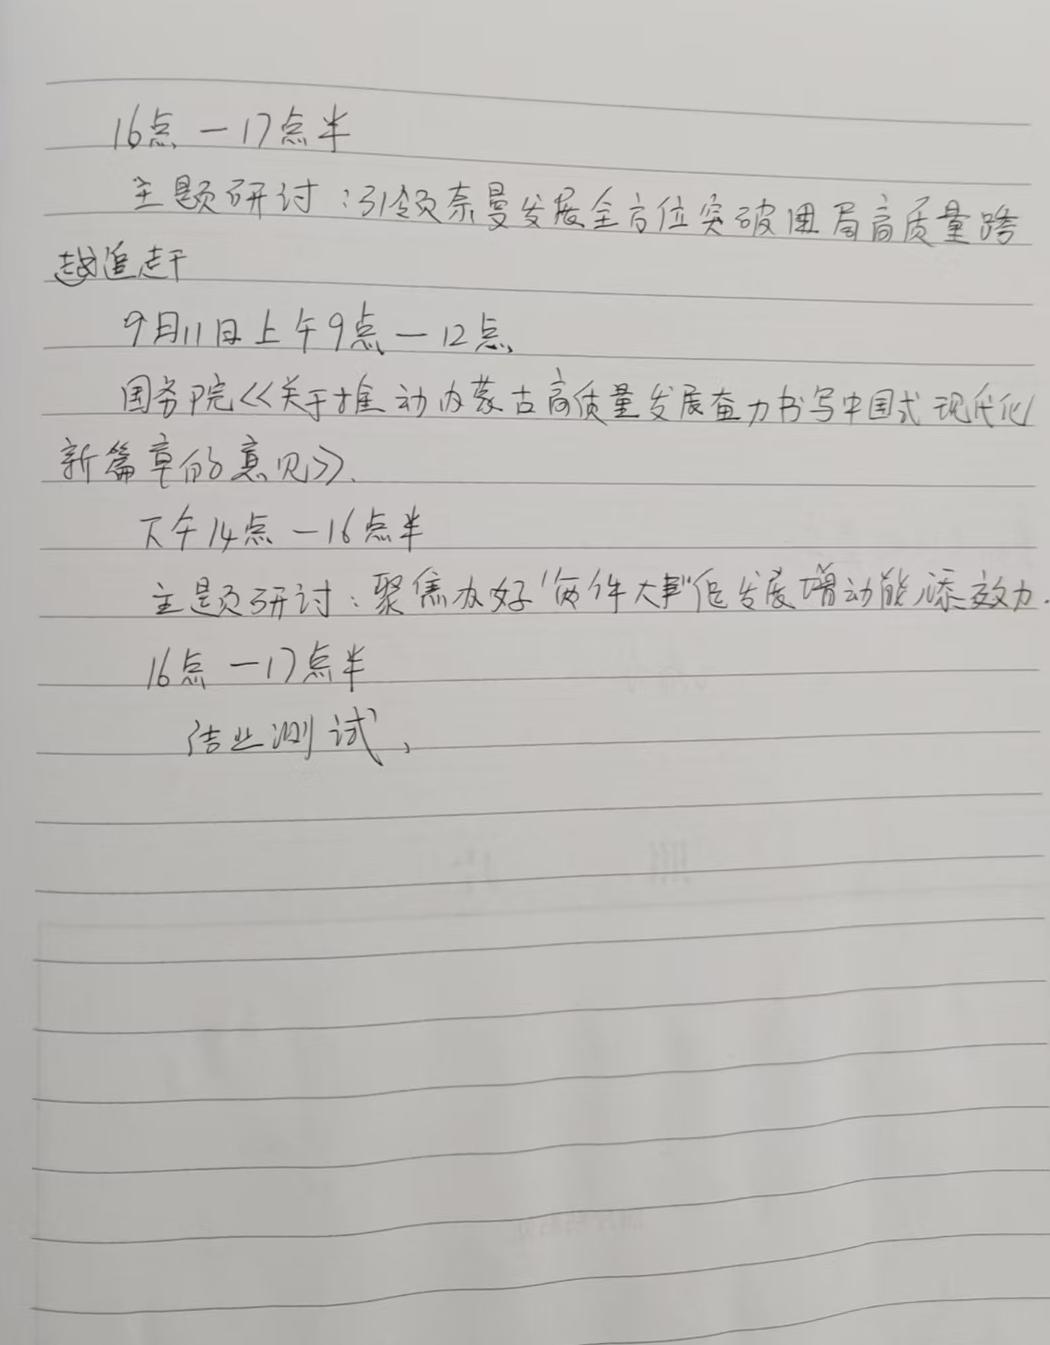 16点一17点半
主题研讨：引领奈曼发展全方位突破困局高质量跨
越追赶
9月11日上午9点一12点
国务院《关于推动内蒙古高质量发展奋力书写中国式现代化
新篇章的意见》.
下午14点一16点半
主题研讨：聚焦办好"两件大事"促发展增动能添效力.
16点一17点半
结业测试、